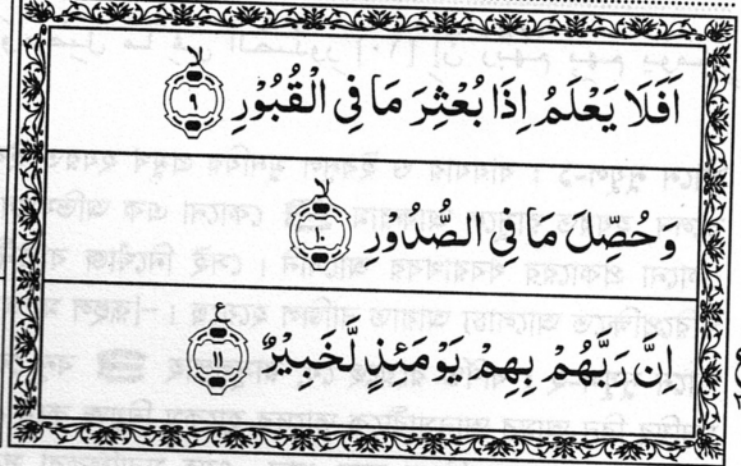 اَفَلَا يَعْلَمُ اِذَا بُعْثِرَ مَا فِى الْقُبُوْرِ ۙ ﴿٩﴾
وَحُصِّلَ مَا فِى الصُّدُوْرِ ۙ ﴿١٠﴾
اِنَّ رَبَّهُمْ بِهِمْ يَوْمَئِذٍ لَّخَبِيْرٌ ع ﴿١١﴾